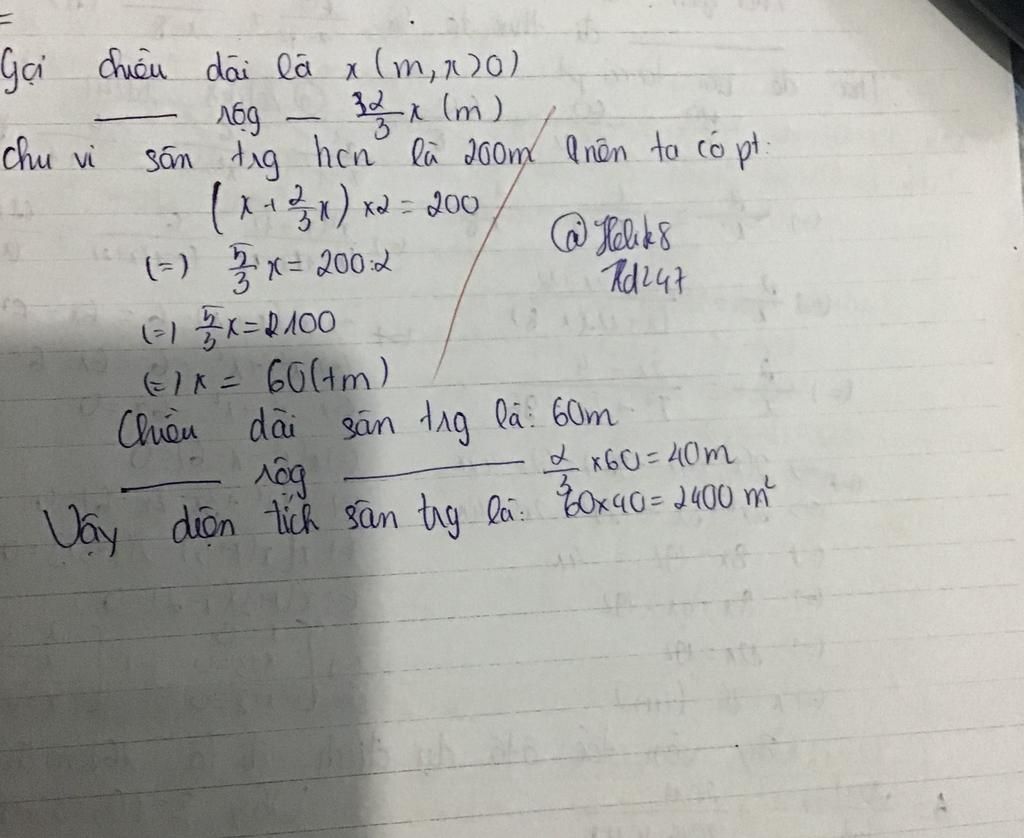 Gọi chiều dài là x (m, x>0)
—— rộg — 2/3 x (m)
Chu vi sân trg hcn là 200m nên ta có pt:
(x + 2/3 x) x2 = 200
(=) 5/3 x = 200:2
(=) 5/3 x = 100
(=) x = 60 (tm)
Chiều dài sân trg là: 60m
—— rộg ———— 2/3 x60 = 40m
Vậy diện tích sân trg là: 60x40 = 2400 m²
@Helik8